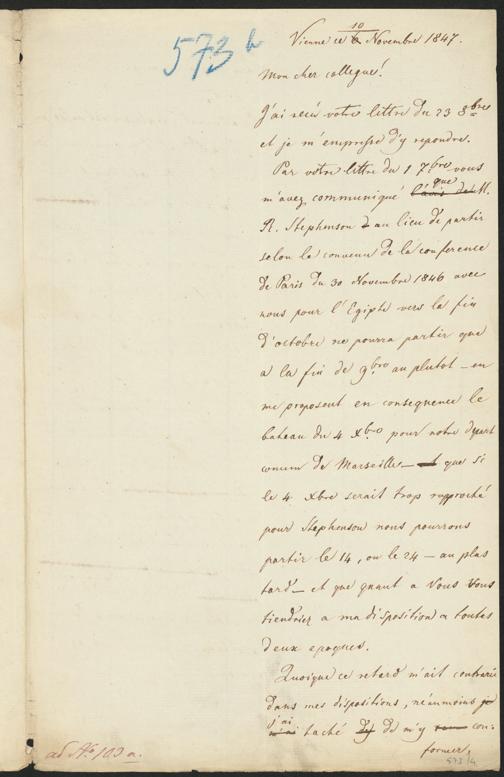 573 b
Vienne ce 10 Novembre 1847.
Mon cher collegue!
J'ai reçu votre lettre du 23 8bre
et je m'empresse d'y repondre.
Par votre lettre du 1 7bre vous
m'avez communiqué que M.
R. Stephenson au lieu de partir
selon la convenu de la conference
de Paris du 30 Novembre 1846 avec
nous pour l'Egipte vers la fin
d'octobre ne pourra partir que
a la fin de 9bre au plutot – en
me proposent en consequence le
bateau du 4 Xbre pour notre depart
comun de Marseille – que si
le 4 Xbre serait trop rapproché
pour Stephenson nous pourrons
partir le 14, ou le 24 – au plus
tard – et que quant a Vous Vous
tiendriez a ma disposition a toutes
deux epoques.
Quoique ce retard m'ait contrarié
dans mes dispositions, néanmoins
j'ai taché de m'y con-
former,
ad No 103 a.
573/4